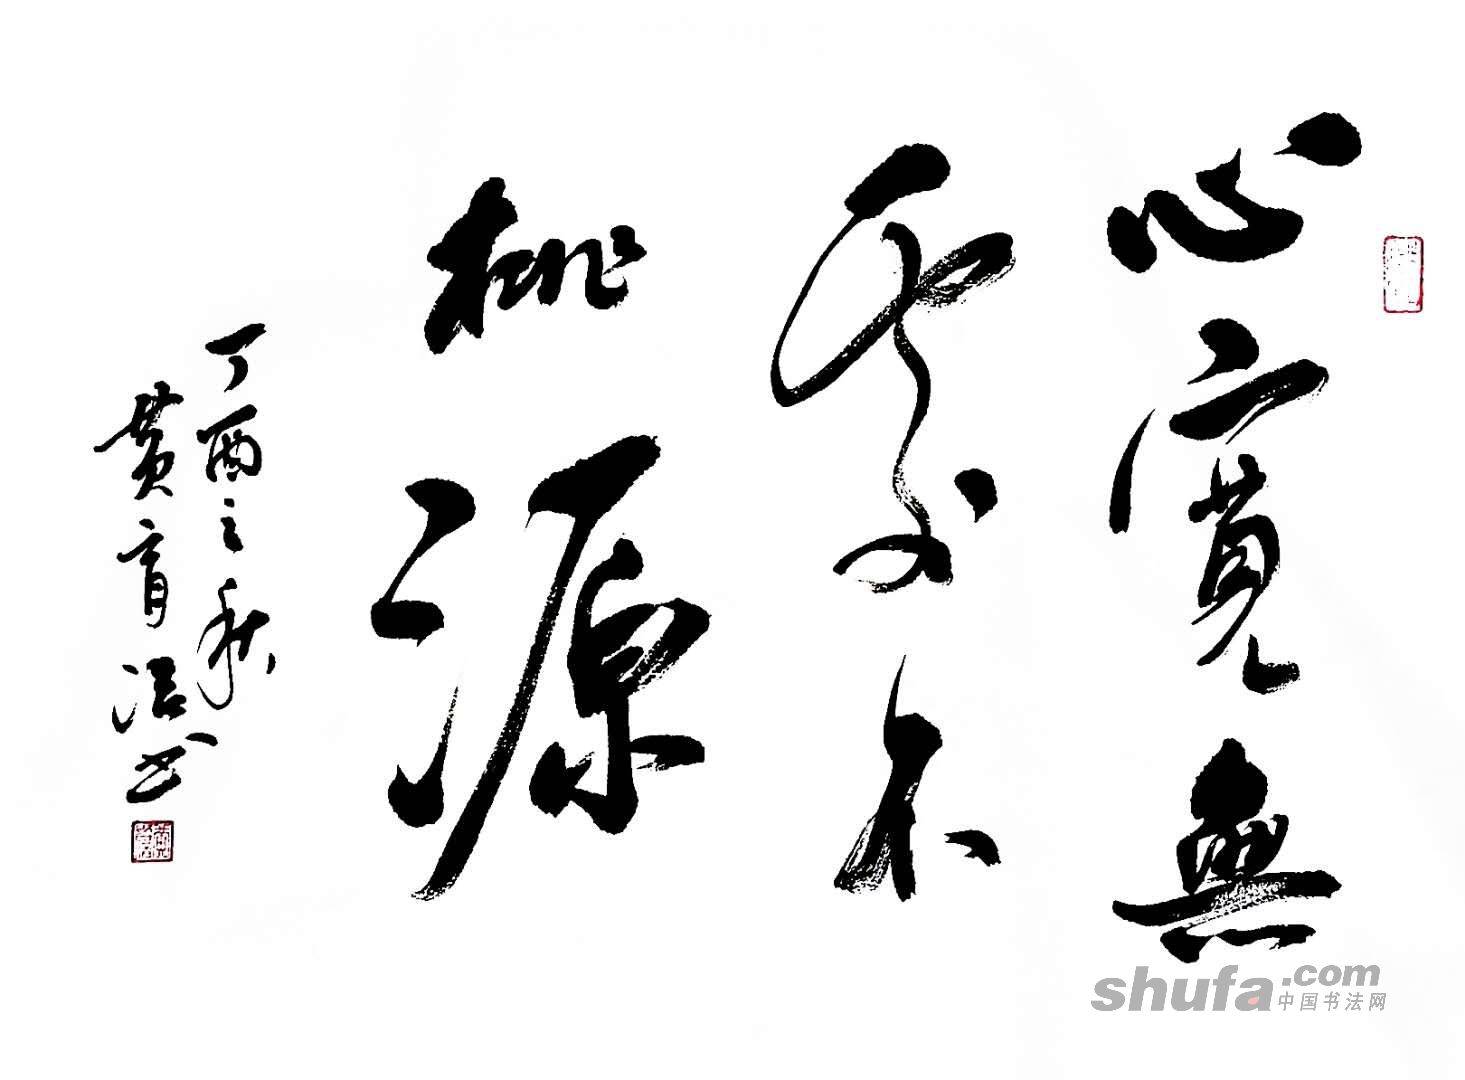 心寬無
處不
桃源
丁酉之秋
黄育浩书
shufa.com
中国书法网